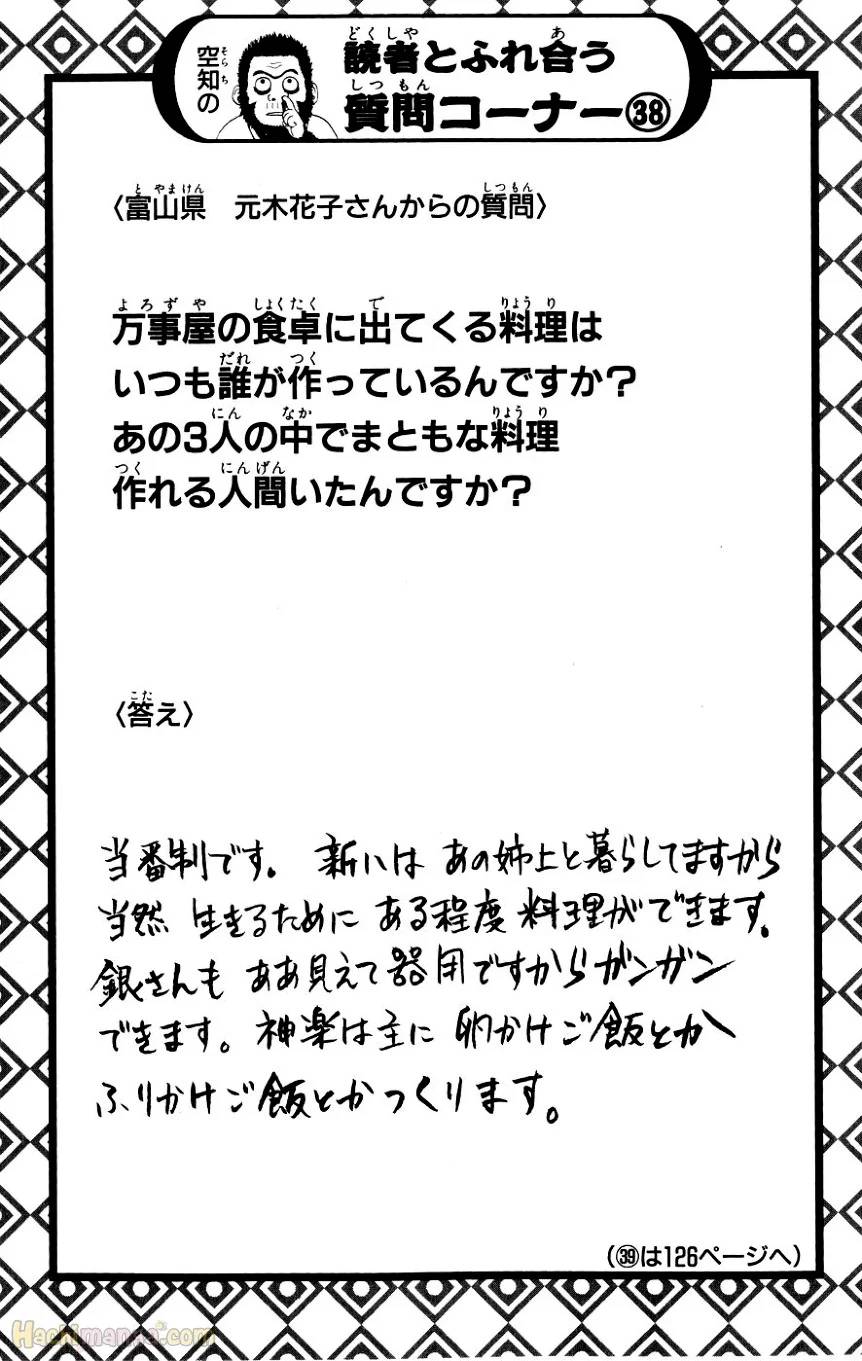 空知の
読者とふれ合う
質問コーナー㊳
〈富山県　元木花子さんからの質問〉
万事屋の食卓に出てくる料理は
いつも誰が作っているんですか？
あの3人の中でまともな料理
作れる人間いたんですか？
〈答え〉
当番制です。 新八は あの姉上と暮らしてますから
当然 生きるために ある程度 料理ができます。
銀さんも ああ見えて器用ですからガンガン
できます。神楽は主に 卵かけご飯とか
ふりかけご飯とかつくります。
(㊴は126ページへ)
Hachimanga.com